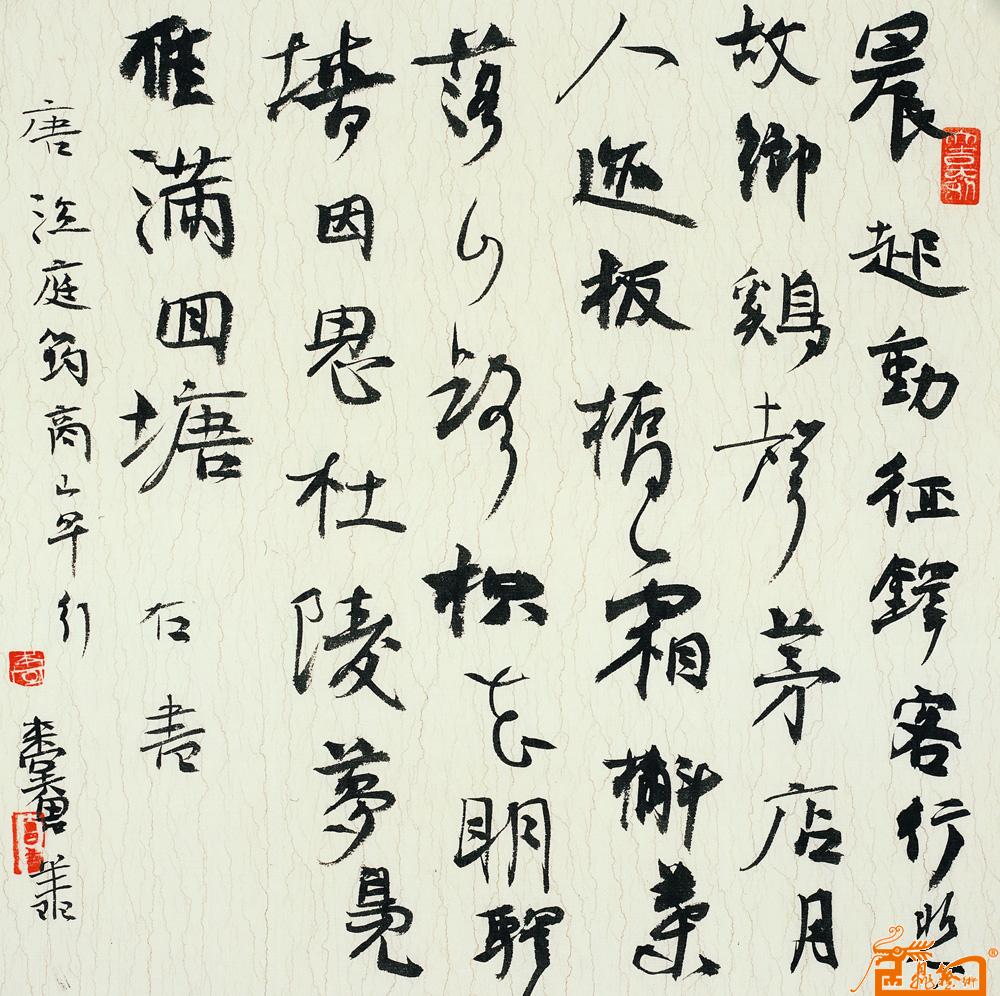 晨起動征鐸客行悲
故鄉鷄聲茅店月
人迹板橋霜槲葉
落山路枳花明驛
墻因思杜陵夢鳧
雁滿回塘 右書
唐温庭筠商山早行